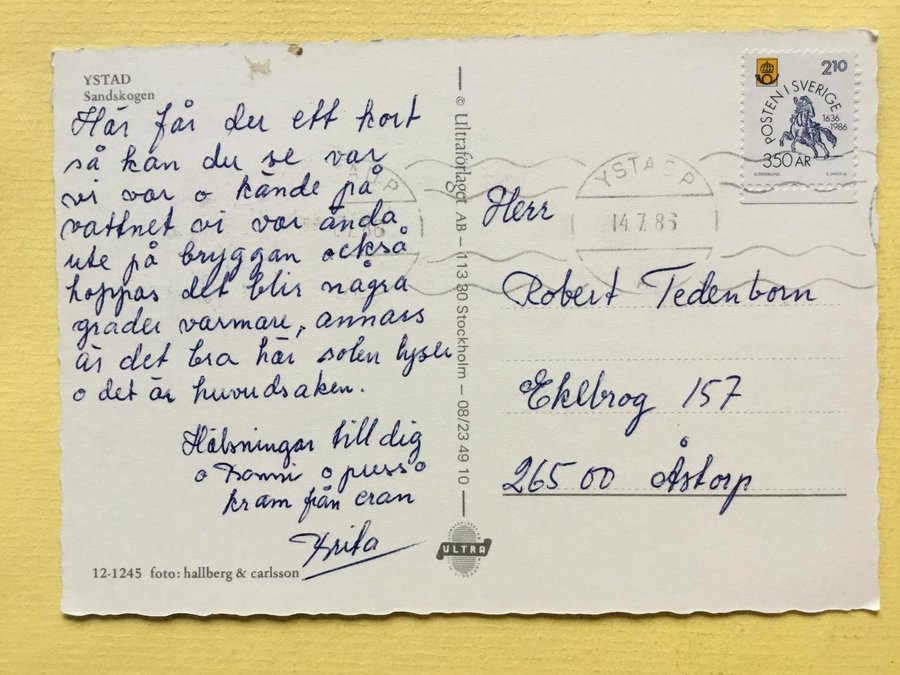 YSTAD
Sandskogen
Här får du ett kort
så kan du se var
vi var o kände på
vattnet vi var ända
ute på bryggan också
hoppas det blir några
grader varmare, annars
är det bra här solen lyser
o det är huvudsaken.
Hälsningar till dig
o o puss o
kram från eran
12-1245 foto: hallberg & carlsson
© Ultraförlaget AB – 113 30 Stockholm – 08/23 49 10
ULTRA
210
POSTEN I SVERIGE
1636
1986
350 ÅR
YSTAD P
14.7.86
Herr
Robert Tedenborn
Ekebrog 157
265 00 Åstorp